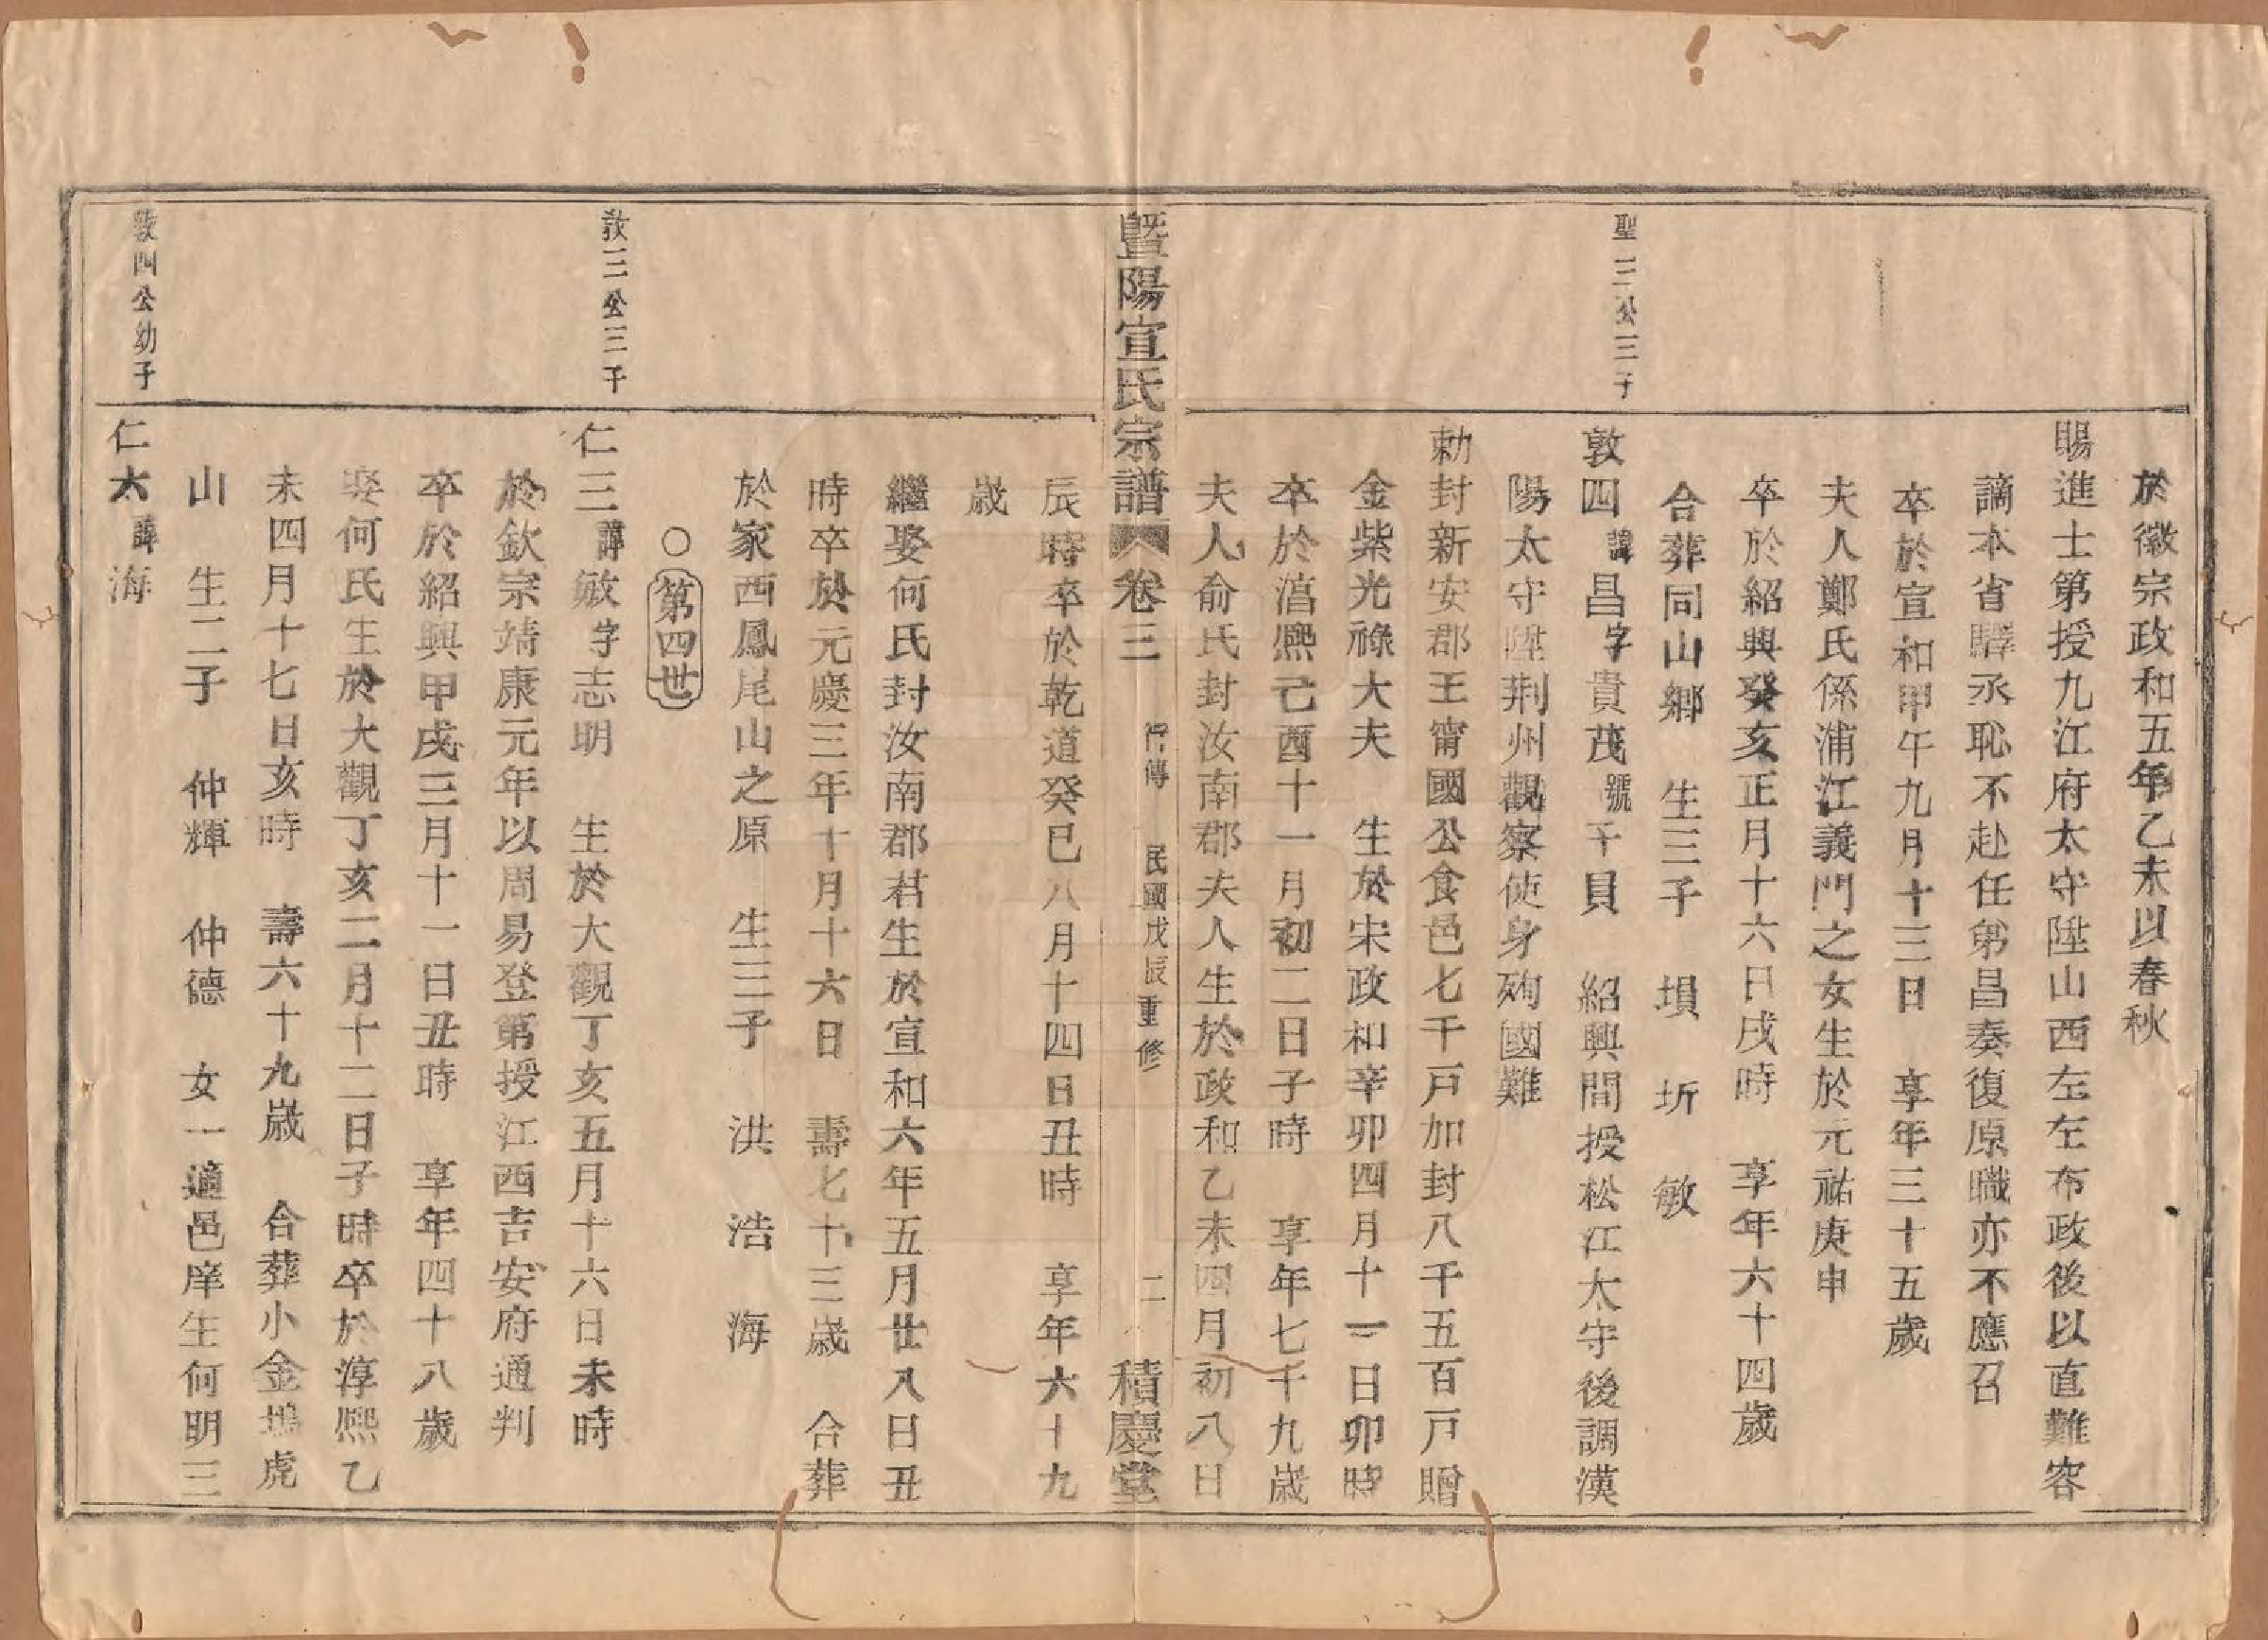 於徽宗政和五年乙未以春秋
賜進士第授九江府太守陞山西左左布政後以直難容
謫本省驛丞恥不赴任第昌奏復原職亦不應召
卒於宣和甲午九月十三日　享年三十五歲
夫人鄭氏係浦江義門之女生於元祐庚申
卒於紹興癸亥正月十六日戌時　享年六十四歲
合葬同山鄉　生三子　塤　圻　敏
聖三公三子
敦四諱昌字貴茂號千貝　紹興間授松江太守後調漢
陽太守陞荆州觀察使身殉國難
勅封新安郡王甯國公食邑七千戸加封八千五百戸贈
金紫光祿大夫　生於宋政和辛卯四月十一日卯時
卒於淳熙己酉十一月初二日子時　享年七十九歲
夫人俞氏封汝南郡夫人生於政和乙未四月初八日
暨陽宣氏宗譜　卷三　行傳　民國戊辰重修　二　積慶堂
辰時卒於乾道癸巳八月十四日丑時　享年六十九
歲
繼娶何氏封汝南郡君生於宣和六年五月廿八日丑
時卒於元慶三年十月十六日　壽七十三歲　合葬
於家西鳳尾山之原　生三子　洪　浩　海
○第四世
敦三公三子
仁三諱敏字志明　生於大觀丁亥五月十六日未時
於欽宗靖康元年以周易登第授江西吉安府通判
卒於紹興甲戌三月十一日丑時　享年四十八歲
娶何氏生於大觀丁亥二月十二日子時卒於淳熙乙
未四月十七日亥時　壽六十九歲　合葬小金塢虎
山　生二子　仲輝　仲德　女一適邑庠生何明三
敦四公幼子
仁六諱海